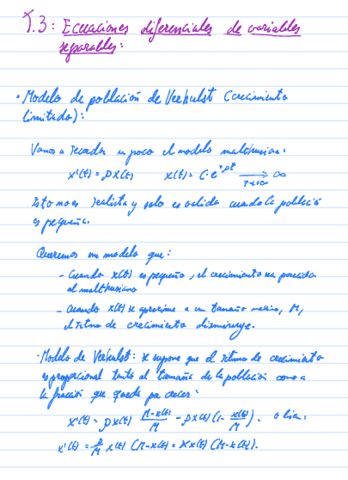 T.3: Ecuaciones diferenciales de variables
separables:
• Modelo de población de Verhulst (crecimiento
limitado):
Vamos a recordar un poco el modelo malthusiano:
x'(t) = ρx(t) x(t) = C·e^{ρt} ⟶_{t→∞} ∞
Esto no es realista y solo es valida cuando la población
es pequeña.
Queremos un modelo que:
- Cuando x(t) es pequeño, el crecimiento sea parecido
al malthusiano
- Cuando x(t) se aproxime a un tamaño máximo, M,
el ritmo de crecimiento disminuye.
• Modelo de Verhulst: se supone que el ritmo de crecimiento
es proporcional tanto al tamaño de la población como a
la fracción que queda por crecer:
x'(t) = ρx(t) (M-x(t))/M = ρx(t) (1 - x(t)/M). o bien:
x'(t) = ρ/M x(t) (M-x(t)) = Kx(t) (M-x(t)).